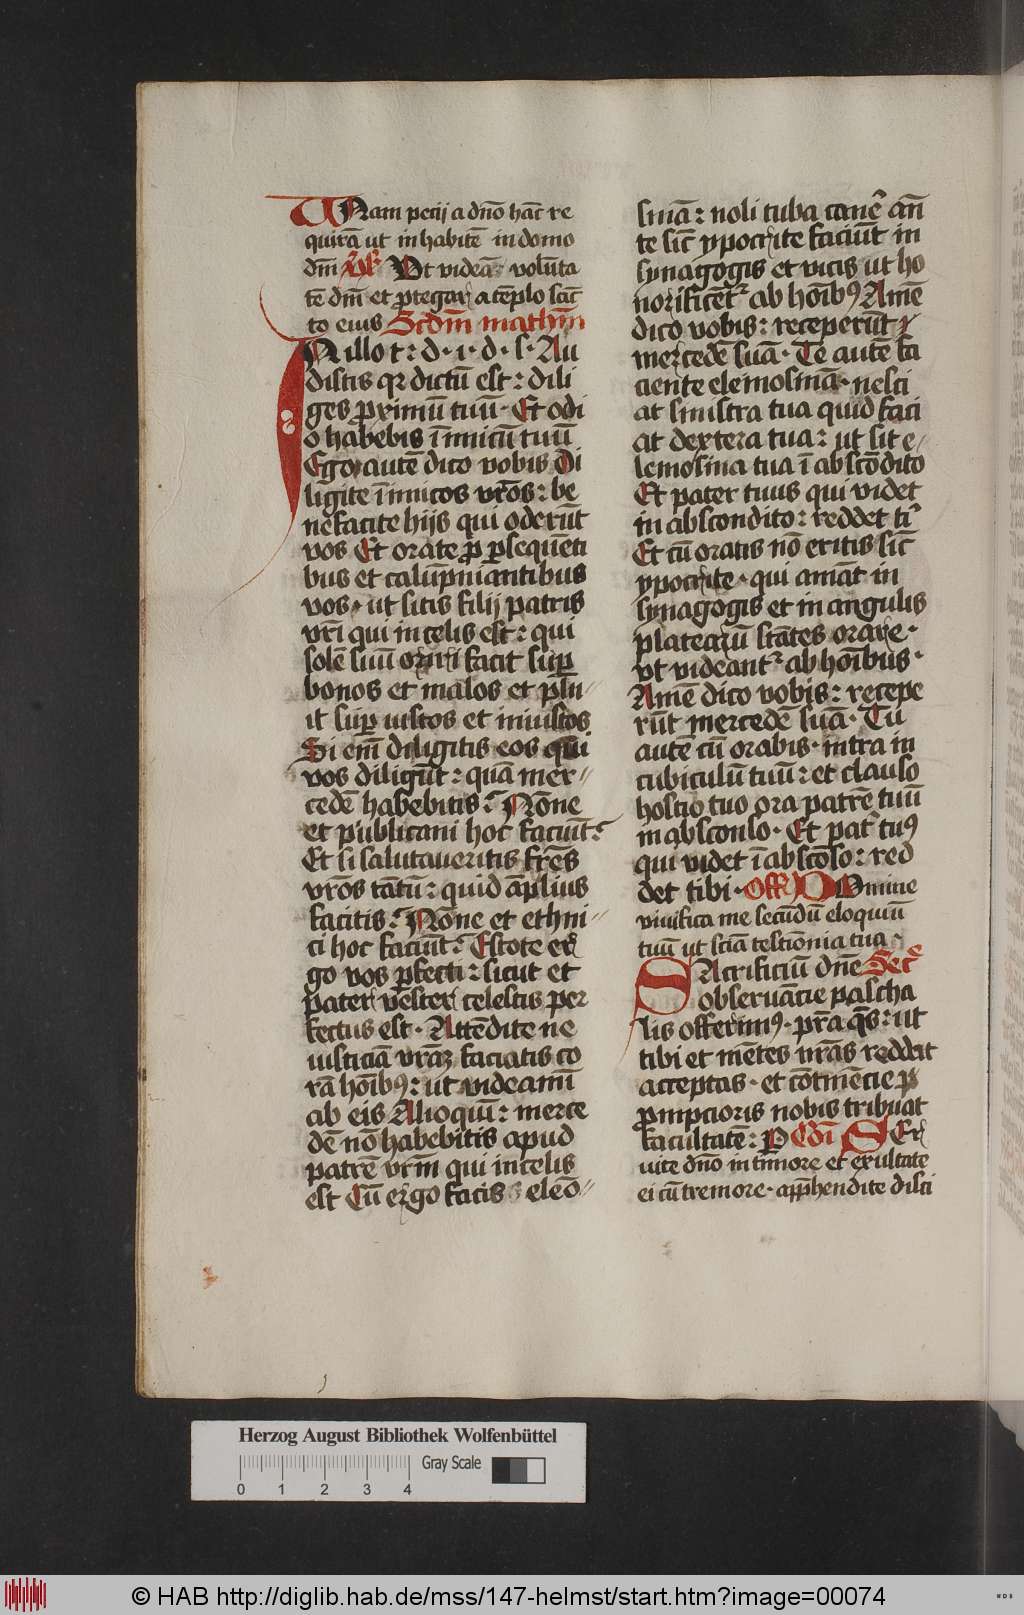 UNam pecij a dn̄o hāc re
quirā ut inhabitē in domo
dn̄i Vs̄ Ut videā volūta
tē dn̄i et ꝓtegar a tēplo scō
to eius Scd̄m mathm̄
IN illo t: d. i. d. s. Au
distis qr dictū est: dili
ges ꝓximū tuū. Et odi
o habebis īimicū tuū
Ego autē dico vobis Di
ligite īimicos vr̄os: be
nefacite hijs qui oderūt
vos Et orate ꝓ ꝑsequēti
bus et calūpniantibus
vos. ut sitis filij patris
vr̄i qui in celis est: qui
solē suū oriri facit suꝑ
bonos et malos et plu-
it suꝑ iustos et iniustos
Si em̄ diligitis eos qui
vos diligūt: quā mer-
cedē habebitis? Nōne
et publicani hoc faciūt?
Et si salutaveritis fr̄es
vr̄os tātū: quid āplius
facitis? Nōne et ethni-
ci hoc faciūt? Estote er
go vos ꝑfecti: sicut et
pater vester celestis per
fectus est. Attēdite ne
iusticiā vr̄aꝫ faciatis co
rā hōibꝰ: ut videamī
ab eis Alioquī: merce
dē nō habebitis apud
patrē vr̄m qui in celis
est Cū ergo facis eleō-
sinā: noli tuba canē ān
te sic̄ ypocrite faciūt in
synagogis et vicis ut ho
norificēt᷑ ab hōibꝰ Amē
dico vobis: receperūt
mercedē suā. Te autē fa
ciente elemosinā. nesci
at sinistra tua quid faci
at dextera tua: ut sit e-
lemosina tua ī abscōdito
Et pater tuus qui videt
in abscondito: reddet ti
Et cū oratis nō eritis sic̄
ypocrite. qui amāt in
synagogis et in angulis
platearū stātes orare.
vt videant᷑ ab hōibus.
Amē dico vobis: recepe
rūt mercedē suā. Tu
autē cū orabis. intra in
cubiculū tuū: et clauso
hostio tuo ora patrē tuū
in absconso. Et pat᷑ tuꝰ
qui videt ī abscōso: red
det tibi. Off Domine
vivifica me secūdū eloquiū
tuū ut sciā testīonia tua.
SAcrificiū dn̄e Sec̄
observācie pascha
lis offerimꝰ. pr̄a qs̄: ut
tibi et mētes nr̄as reddat
acceptas. et cōtinēcie ꝑ
ꝓmpcioris nobis tribuat
facultatē: P Cōi SEr
uite dn̄o in timore et exultate
ei cū tremore. apꝑhendite disci
Herzog August Bibliothek Wolfenbüttel
Gray Scale
0 1 2 3 4
© HAB http://diglib.hab.de/mss/147-helmst/start.htm?image=00074